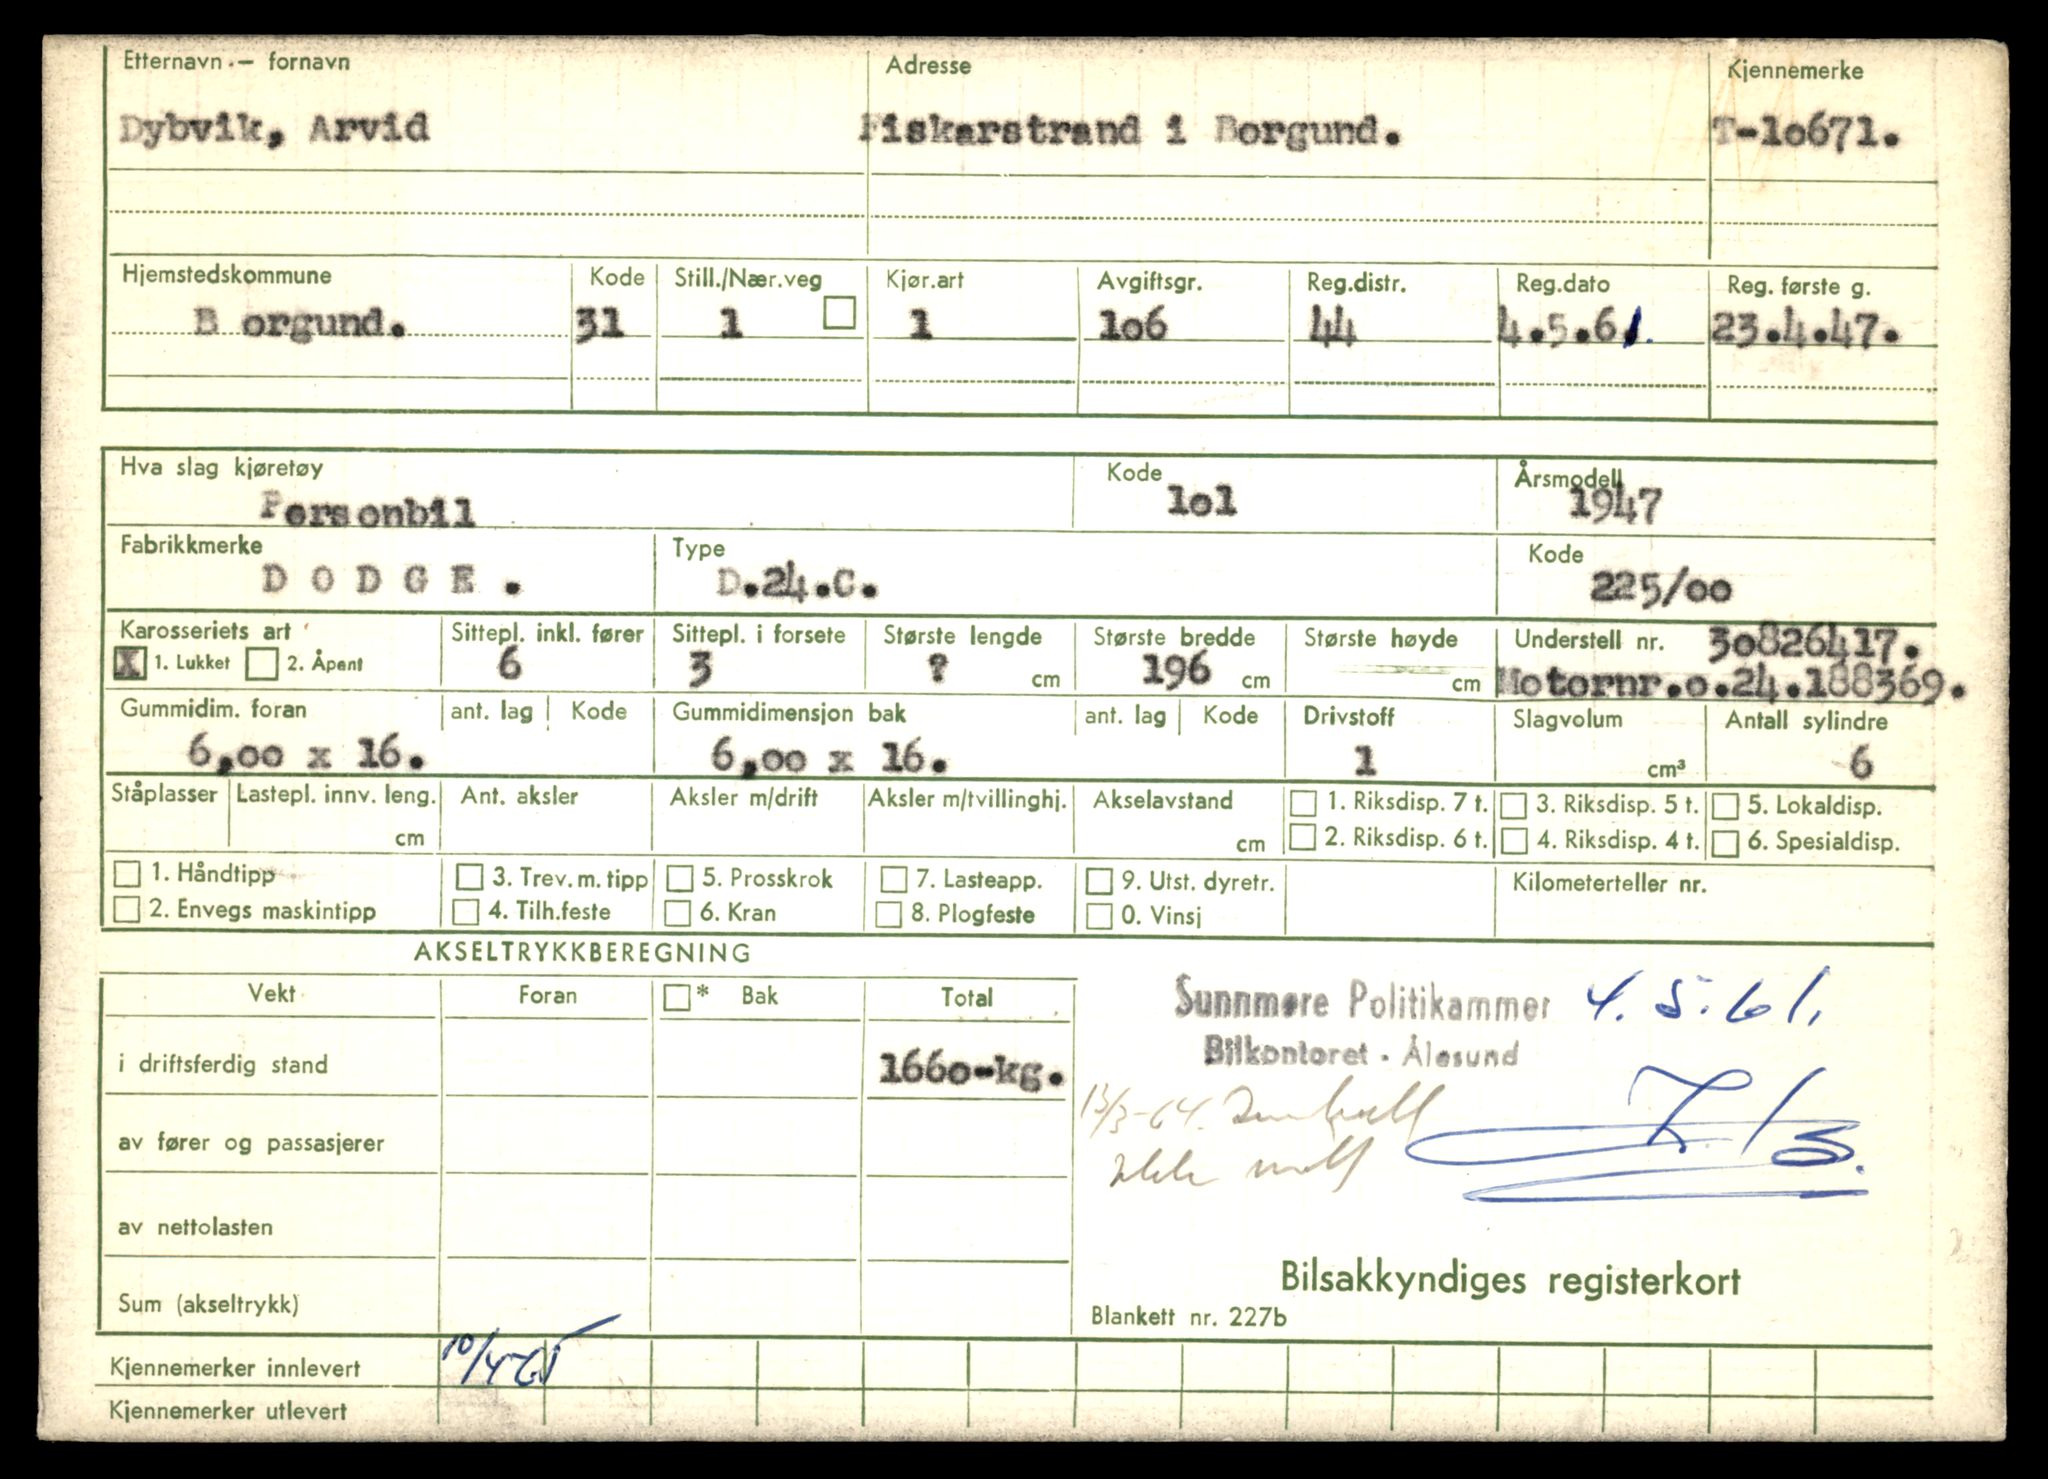 Etternavn - fornavn Adresse Kjennemerke
Dybvik, Arvid Fiskarstrand i Borgund. T-10671.
Hjemstedskommune Kode Still./Nær.veg Kjør.art Avgiftsgr. Reg.distr. Reg.dato Reg. første g.
B orgund. 31 1 1 106 44 4.5.61. 23.4.47.
Hva slag kjøretøy Kode Årsmodell
Personbil 101 1947
Fabrikkmerke Type Kode
D O D G E . D.24.C. 225/00
Karosseriets art Sittepl. inkl. fører Sittepl. i forsete Største lengde Største bredde Største høyde Understell nr. 30826417.
X 1. Lukket 2. Åpent 6 3 ? cm 196 cm cm Motornr.o.24.188369.
Gummidim. foran ant. lag Kode Gummidimensjon bak ant. lag Kode Drivstoff Slagvolum Antall sylindre
6,00 x 16. 6,00 x 16. 1 cm³ 6
Ståplasser Lastepl. innv. leng. Ant. aksler Aksler m/drift Aksler m/tvillinghj. Akselavstand 1. Riksdisp. 7 t. 3. Riksdisp. 5 t. 5. Lokaldisp.
cm cm 2. Riksdisp. 6 t. 4. Riksdisp. 4 t. 6. Spesialdisp.
1. Håndtipp 3. Trev. m. tipp 5. Prosskrok 7. Lasteapp. 9. Utst. dyretr. Kilometerteller nr.
2. Envegs maskintipp 4. Tilh.feste 6. Kran 8. Plogfeste 0. Vinsj
AKSELTRYKKBEREGNING
Vekt Foran * Bak Total
Sunnmøre Politikammer 4.5.61.
Bilkontoret . Ålesund
i driftsferdig stand 1660-kg.
13/3-64.
av fører og passasjerer
av nettolasten
Bilsakkyndiges registerkort
Sum (akseltrykk) Blankett nr. 227b
Kjennemerker innlevert 10/4-65
Kjennemerker utlevert